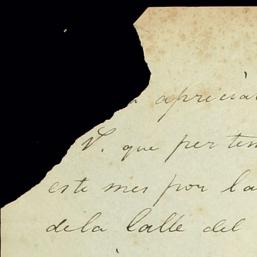 a aprecia
V. que per ten
este mes por la
dela Calle del